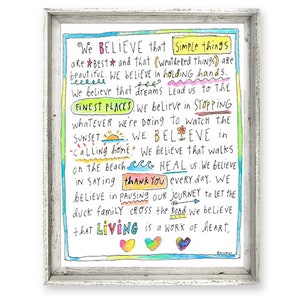 We BELIEVE that Simple things
are ★BEST★ and that (weathered things) are
beautiful. We believe in holding hands.
We believe that dreams lead us to the
FINEST PLACES. We believe in STOPPING
whatever we're doing to watch the
sunset. We BELIEVE in
calling home. We believe that walks
on the beach HEAL us. We believe
in saying THANK YOU every day. We
believe in PAUSING our JOURNEY to let the
duck family cross the Road. We believe
that LIVING is a work of heart.